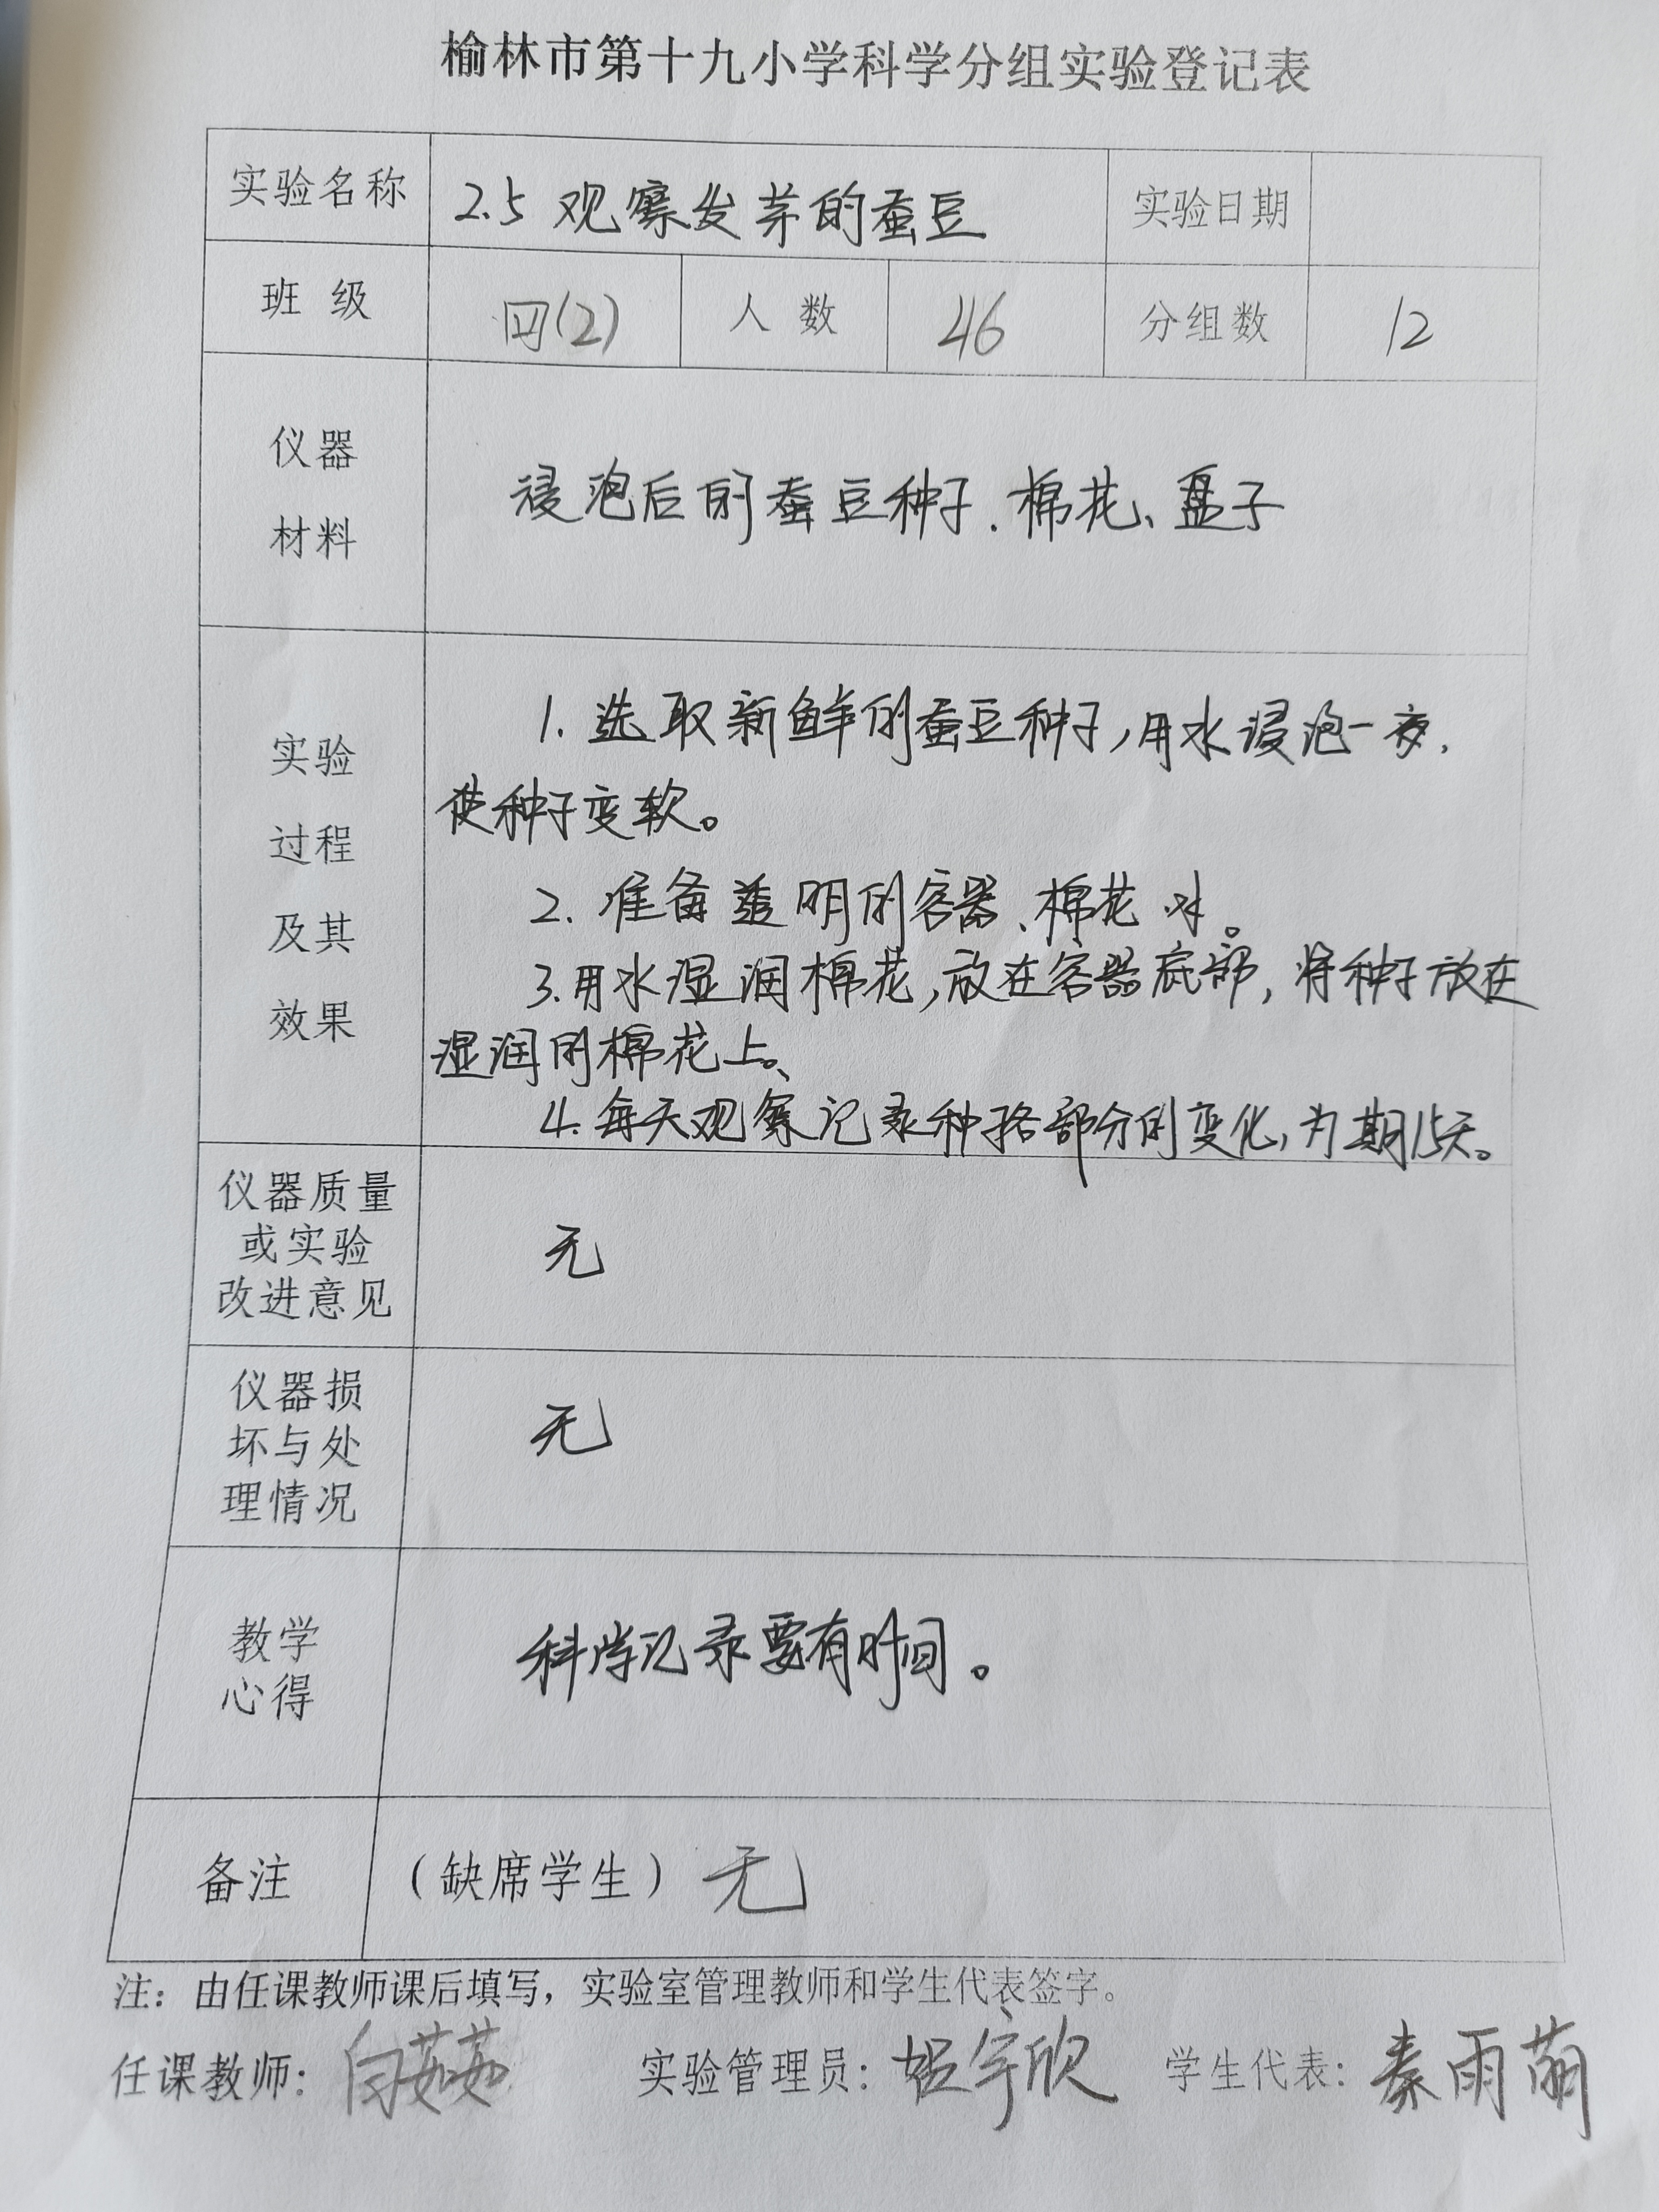 榆林市第十九小学科学分组实验登记表
实验名称 2.5 观察发芽的蚕豆 实验日期
班 级 四(2) 人 数 46 分组数 12
仪器
材料
浸泡后的蚕豆种子、棉花、盘子
实验
过程
及其
效果
1. 选取新鲜的蚕豆种子,用水浸泡一夜,
使种子变软。
2. 准备透明的容器、棉花 水。
3.用水湿润棉花,放在容器底部,将种子放在
湿润的棉花上。
4.每天观察记录种子各部分的变化,为期15天。
仪器质量
或实验
改进意见
无
仪器损
坏与处
理情况
无
教学
心得
科学记录要有时间。
备注 (缺席学生) 无
注:由任课教师课后填写,实验室管理教师和学生代表签字。
任课教师: 白茹茹 实验管理员: 姬宇欣 学生代表: 秦雨萌